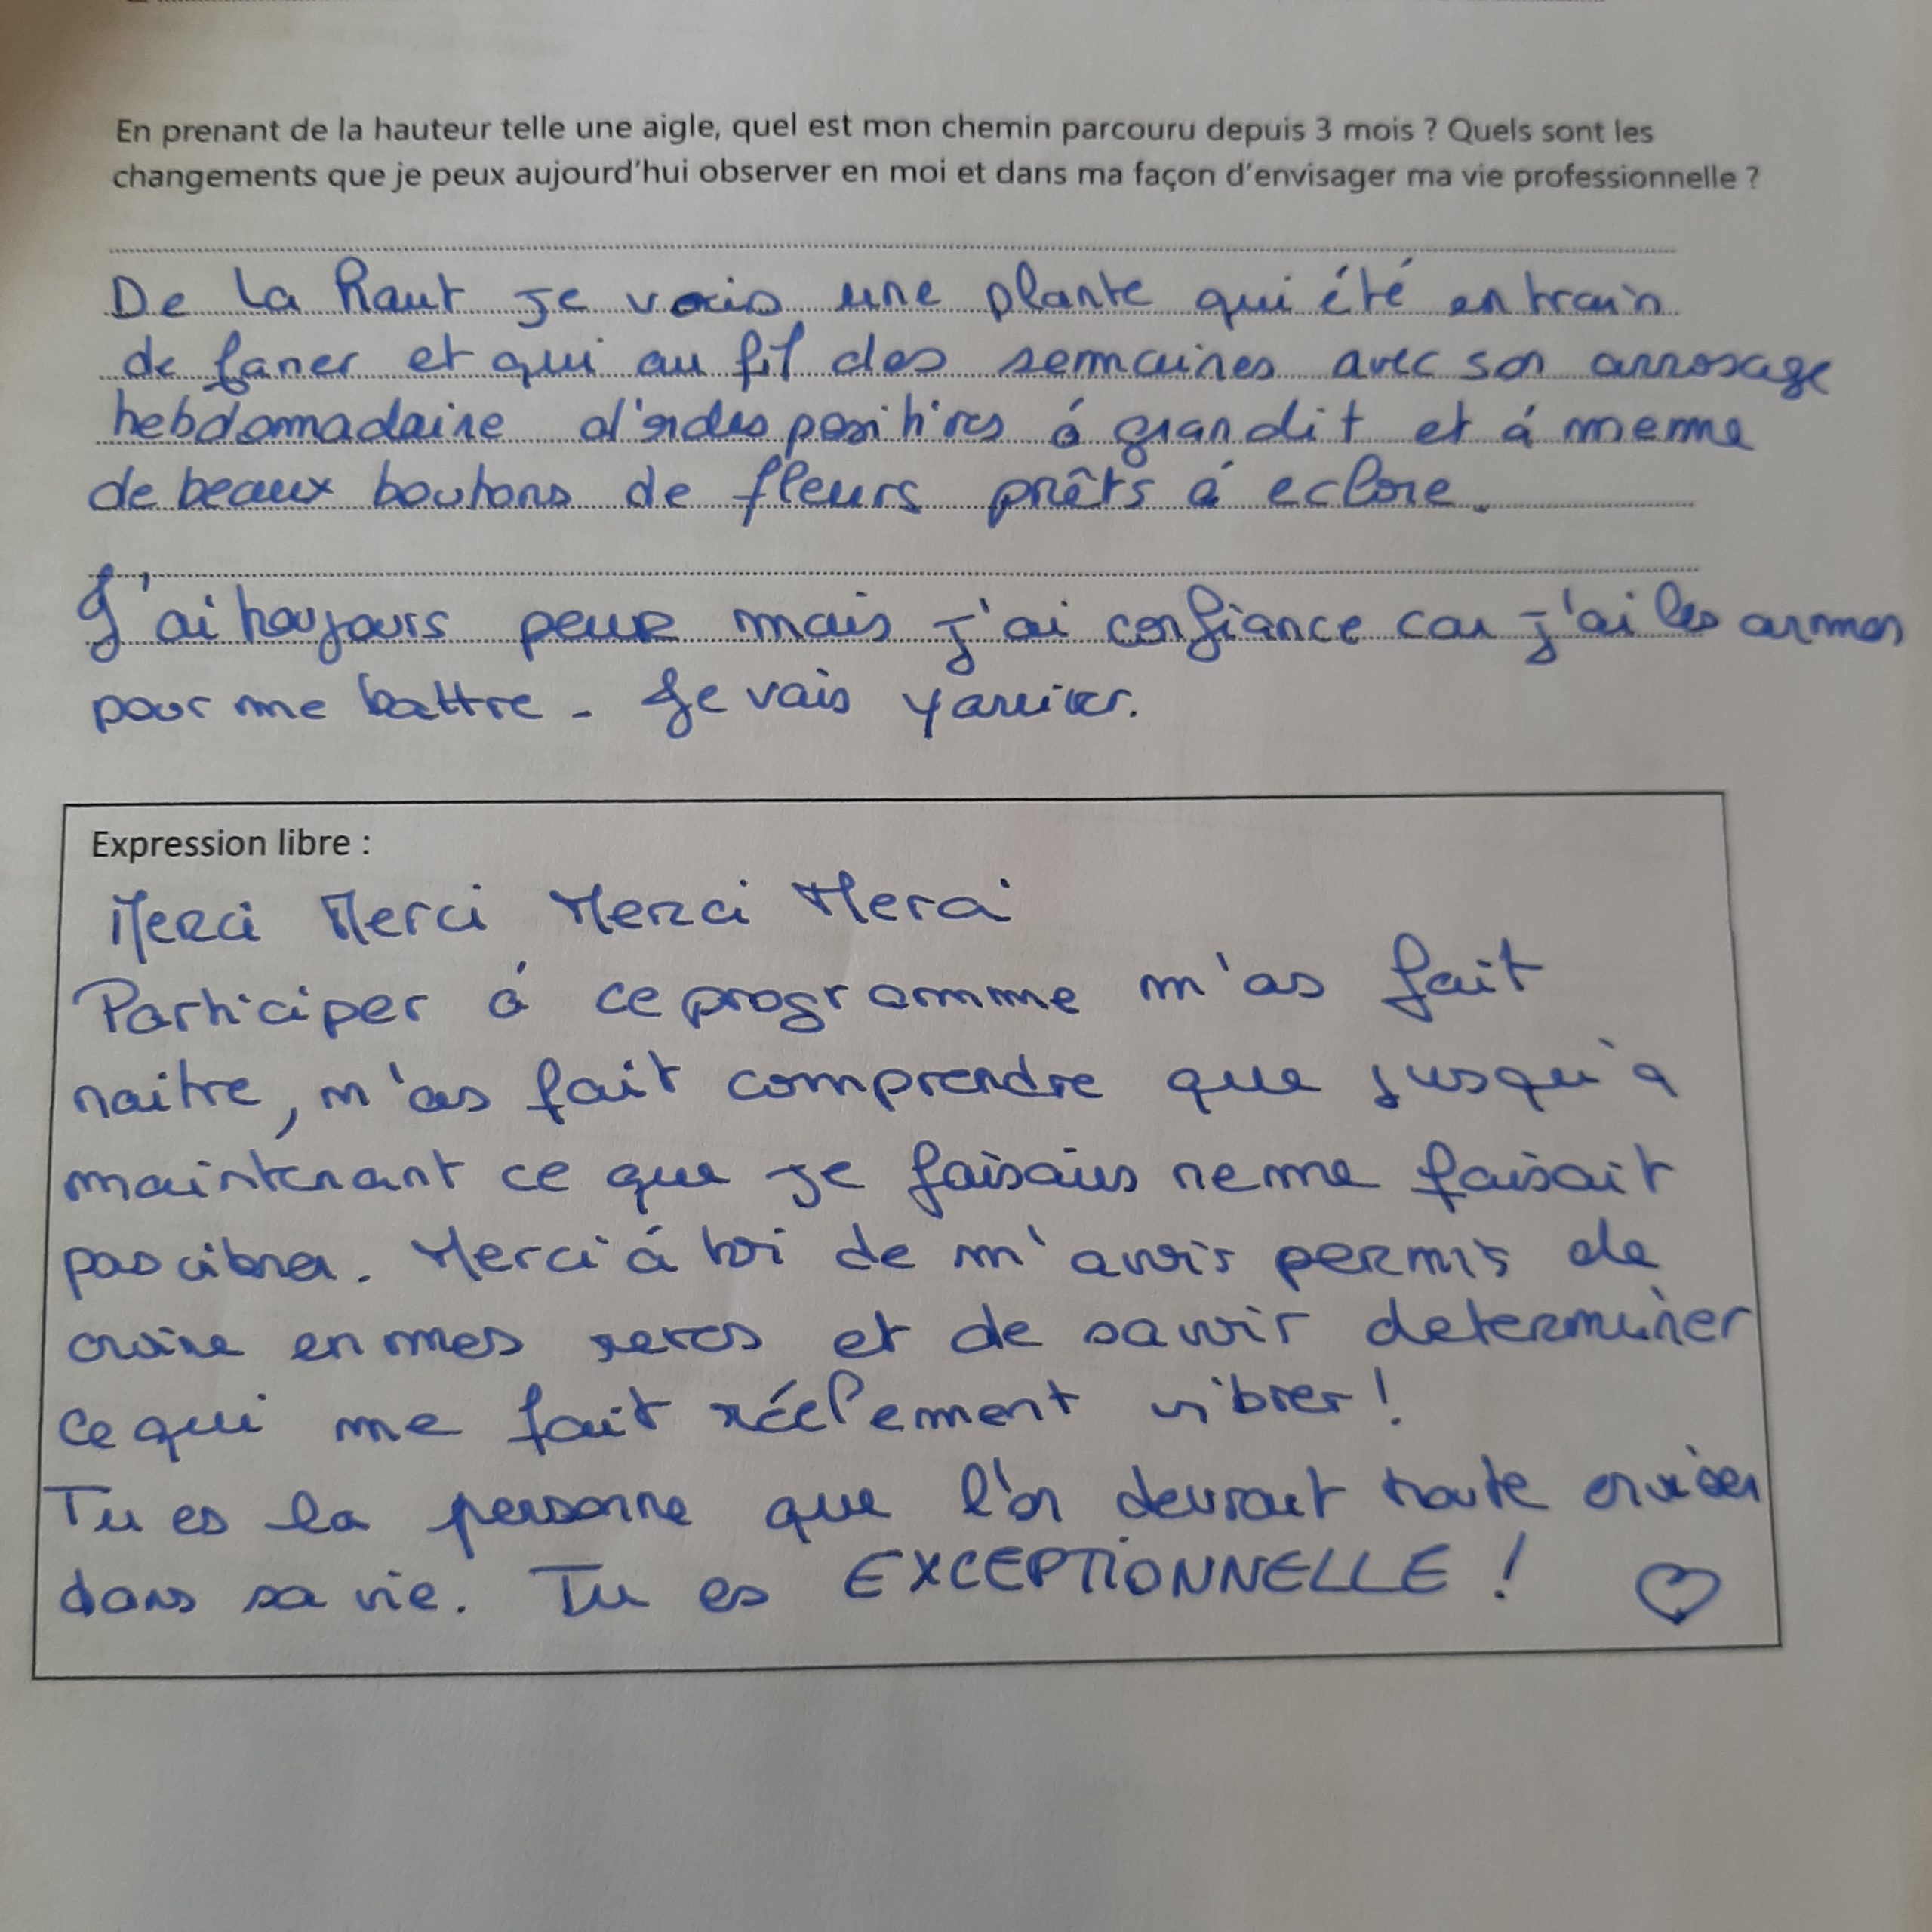 En prenant de la hauteur telle une aigle, quel est mon chemin parcouru depuis 3 mois ? Quels sont les
changements que je peux aujourd'hui observer en moi et dans ma façon d'envisager ma vie professionnelle ?
De la haut je vois une plante qui été en train
de faner et qui au fil des semaines avec son arrosage
hebdomadaire d'ondes positives á grandit et á meme
de beaux boutons de fleurs prêts á eclore.
J'ai toujours peur mais j'ai confiance car j'ai les armes
pour me battre. Je vais y arriver.
Expression libre :
Merci Merci Merci Merci
Participer á ce programme m'as fait
naitre, m'as fait comprendre que jusqu'à
maintenant ce que je faisais ne me faisait
pas vibrer. Merci á toi de m'avoir permis de
croire en mes reves et de savoir determiner
ce qui me fait réelement vibrer !
Tu es la personne que l'on devrait toute croiser
dans sa vie. Tu es EXCEPTIONNELLE !